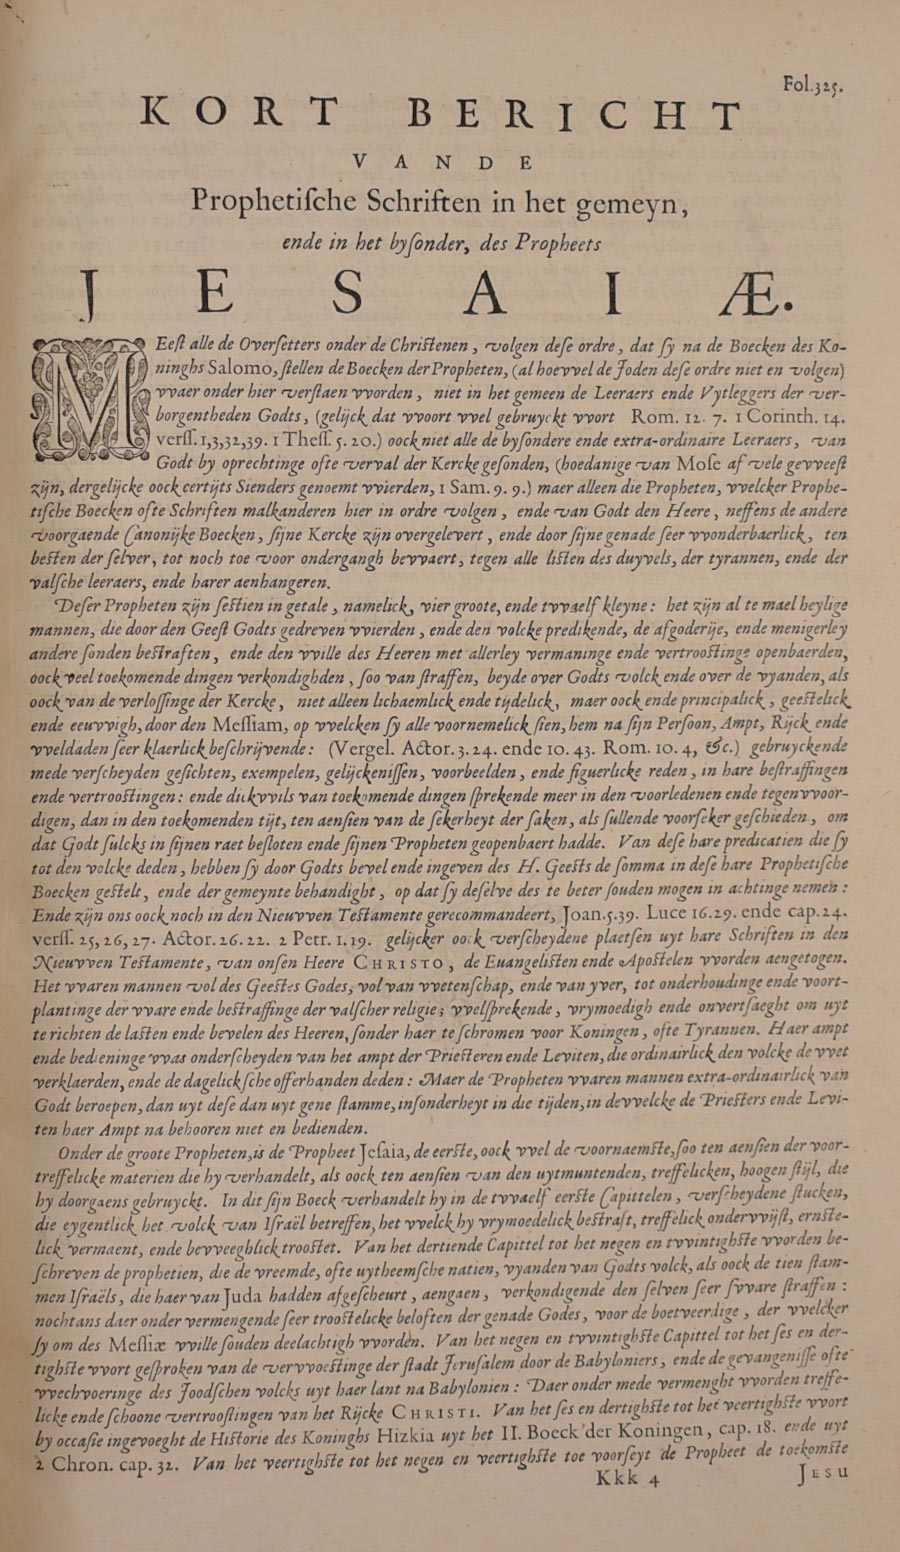 Fol.325.
KORT BERICHT
VANDE
Prophetiſche Schriften in het gemeyn,
ende in het byſonder, des Propheets
JESAIÆ.
MEeſt alle de Overſetters onder de Chriſtenen, volgen deſe ordre, dat ſy na de Boecken des Ko-
ninghs Salomo, ſtellen de Boecken der Propheten, (al hoevvel de Joden deſe ordre niet en volgen)
vvaer onder hier verſtaen vvorden, niet in het gemeen de Leeraers ende Vytleggers der ver-
borgentheden Godts, (gelijck dat vvoort vvel gebruyckt vvort Rom. 12. 7. 1 Corinth. 14.
verſſ. 1,3,32,39. 1 Theſſ. 5. 20.) oock niet alle de byſondere ende extra-ordinaire Leeraers, van
Godt by oprechtinge ofte verval der Kercke geſonden, (hoedanige van Moſe af vele gevveeſt
zijn, dergelijcke oock certijts Sienders genoemt vvierden, 1 Sam. 9. 9.) maer alleen die Propheten, vvelcker Prophe-
tiſche Boecken ofte Schriften malkanderen hier in ordre volgen, ende van Godt den Heere, neffens de andere
voorgaende Canonijke Boecken, ſijne Kercke zijn overgelevert, ende door ſijne genade ſeer vvonderbaerlick, ten
beſten der ſelver, tot noch toe voor ondergangh bevvaert, tegen alle liſten des duyvels, der tyrannen, ende der
valſche leeraers, ende harer aenhangeren.
Deſer Propheten zijn ſeſtien in getale, namelick, vier groote, ende tvvaelf kleyne: het zijn al te mael heylige
mannen, die door den Geeſt Godts gedreven vvierden, ende den volcke predikende, de afgoderije, ende menigerley
andere ſonden beſtraften, ende den vville des Heeren met allerley vermaninge ende vertrooſtinge openbaerden,
oock veel toekomende dingen verkondighden, ſoo van ſtraffen, beyde over Godts volck ende over de vyanden, als
oock van de verloſſinge der Kercke, niet alleen lichaemlick ende tijdelick, maer oock ende principalick, geeſtelick
ende eeuvvigh, door den Meſſiam, op vvelcken ſy alle voornemelick ſien, hem na ſijn Perſoon, Ampt, Rijck ende
vveldaden ſeer klaerlick beſchrijvende: (Vergel. Actor. 3. 24. ende 10. 43. Rom. 10. 4, &c.) gebruyckende
mede verſcheyden geſichten, exempelen, gelijckeniſſen, voorbeelden, ende figuerlicke reden, in hare beſtraffingen
ende vertrooſtingen: ende dickvvils van toekomende dingen ſprekende meer in den voorledenen ende tegenvvoor-
digen, dan in den toekomenden tijt, ten aenſien van de ſekerheyt der ſaken, als ſullende voorſeker geſchieden, om
dat Godt ſulcks in ſijnen raet beſloten ende ſijnen Propheten geopenbaert hadde. Van deſe hare predicatien die ſy
tot den volcke deden, hebben ſy door Godts bevel ende ingeven des H. Geeſts de ſomma in deſe hare Prophetiſche
Boecken geſtelt, ende der gemeynte behandight, op dat ſy deſelve des te beter ſouden mogen in achtinge nemen:
Ende zijn ons oock noch in den Nieuvven Teſtamente gerecommandeert, Joan. 5. 39. Luce 16. 29. ende cap. 24.
verſſ. 25, 26, 27. Actor. 26. 22. 2 Petr. 1. 19. gelijcker oock verſcheydene plaetſen uyt hare Schriften in den
Nieuvven Teſtamente, van onſen Heere CHRISTO, de Euangeliſten ende Apoſtelen vvorden aengetogen.
Het vvaren mannen vol des Geeſtes Godes, vol van vvetenſchap, ende van yver, tot onderhoudinge ende voort-
plantinge der vvare ende beſtraffinge der valſcher religie; vvelſprekende, vrymoedigh ende onvertſaeght om uyt
te richten de laſten ende bevelen des Heeren, ſonder haer te ſchromen voor Koningen, ofte Tyrannen. Haer ampt
ende bedieninge vvas onderſcheyden van het ampt der Prieſteren ende Leviten, die ordinairlick den volcke de vvet
verklaerden, ende de dagelickſche offerhanden deden: Maer de Propheten vvaren mannen extra-ordinairlick van
Godt beroepen, dan uyt deſe dan uyt gene ſtamme, inſonderheyt in die tijden, in devvelcke de Prieſters ende Levi-
ten haer Ampt na behooren niet en bedienden.
Onder de groote Propheten, is de Propheet Jeſaia, de eerſte, oock vvel de voornaemſte, ſoo ten aenſien der voor-
treffelicke materien die hy verhandelt, als oock ten aenſien van den uytmuntenden, treffelicken, hoogen ſtijl, die
hy doorgaens gebruyckt. In dit ſijn Boeck verhandelt hy in de tvvaelf eerſte Capittelen, verſcheydene ſtucken,
die eygentlick het volck van Iſraël betreffen, het vvelck hy vrymoedelick beſtraft, treffelick ondervvijſt, ernſte-
lick vermaent, ende bevveeghlick trooſtet. Van het dertiende Capittel tot het negen en tvvintighſte vvorden be-
ſchreven de prophetien, die de vreemde, ofte uytheemſche natien, vyanden van Godts volck, als oock de tien ſtam-
men Iſraëls, die haer van Juda hadden afgeſcheurt, aengaen, verkondigende den ſelven ſeer ſvvare ſtraffen:
nochtans daer onder vermengende ſeer trooſtelicke beloften der genade Godes, voor de boetveerdige, der vvelcker
ſy om des Meſſiæ vville ſouden deelachtigh vvorden. Van het negen en tvvintighſte Capittel tot het ſes en der-
tighſte vvort geſproken van de vervvoeſtinge der ſtadt Jeruſalem door de Babyloniers, ende de gevangeniſſe ofte
vvechvoeringe des Joodſchen volcks uyt haer lant na Babylonien: Daer onder mede vermenght vvorden treffe-
licke ende ſchoone vertrooſtingen van het Rijcke CHRISTI. Van het ſes en dertighſte tot het veertighſte vvort
by occaſie ingevoeght de Hiſtorie des Koninghs Hizkia uyt het II. Boeck der Koningen, cap. 18. ende uyt
2 Chron. cap. 32. Van het veertighſte tot het negen en veertighſte toe voorſeyt de Propheet de toekomſte
Kkk 4 JESU